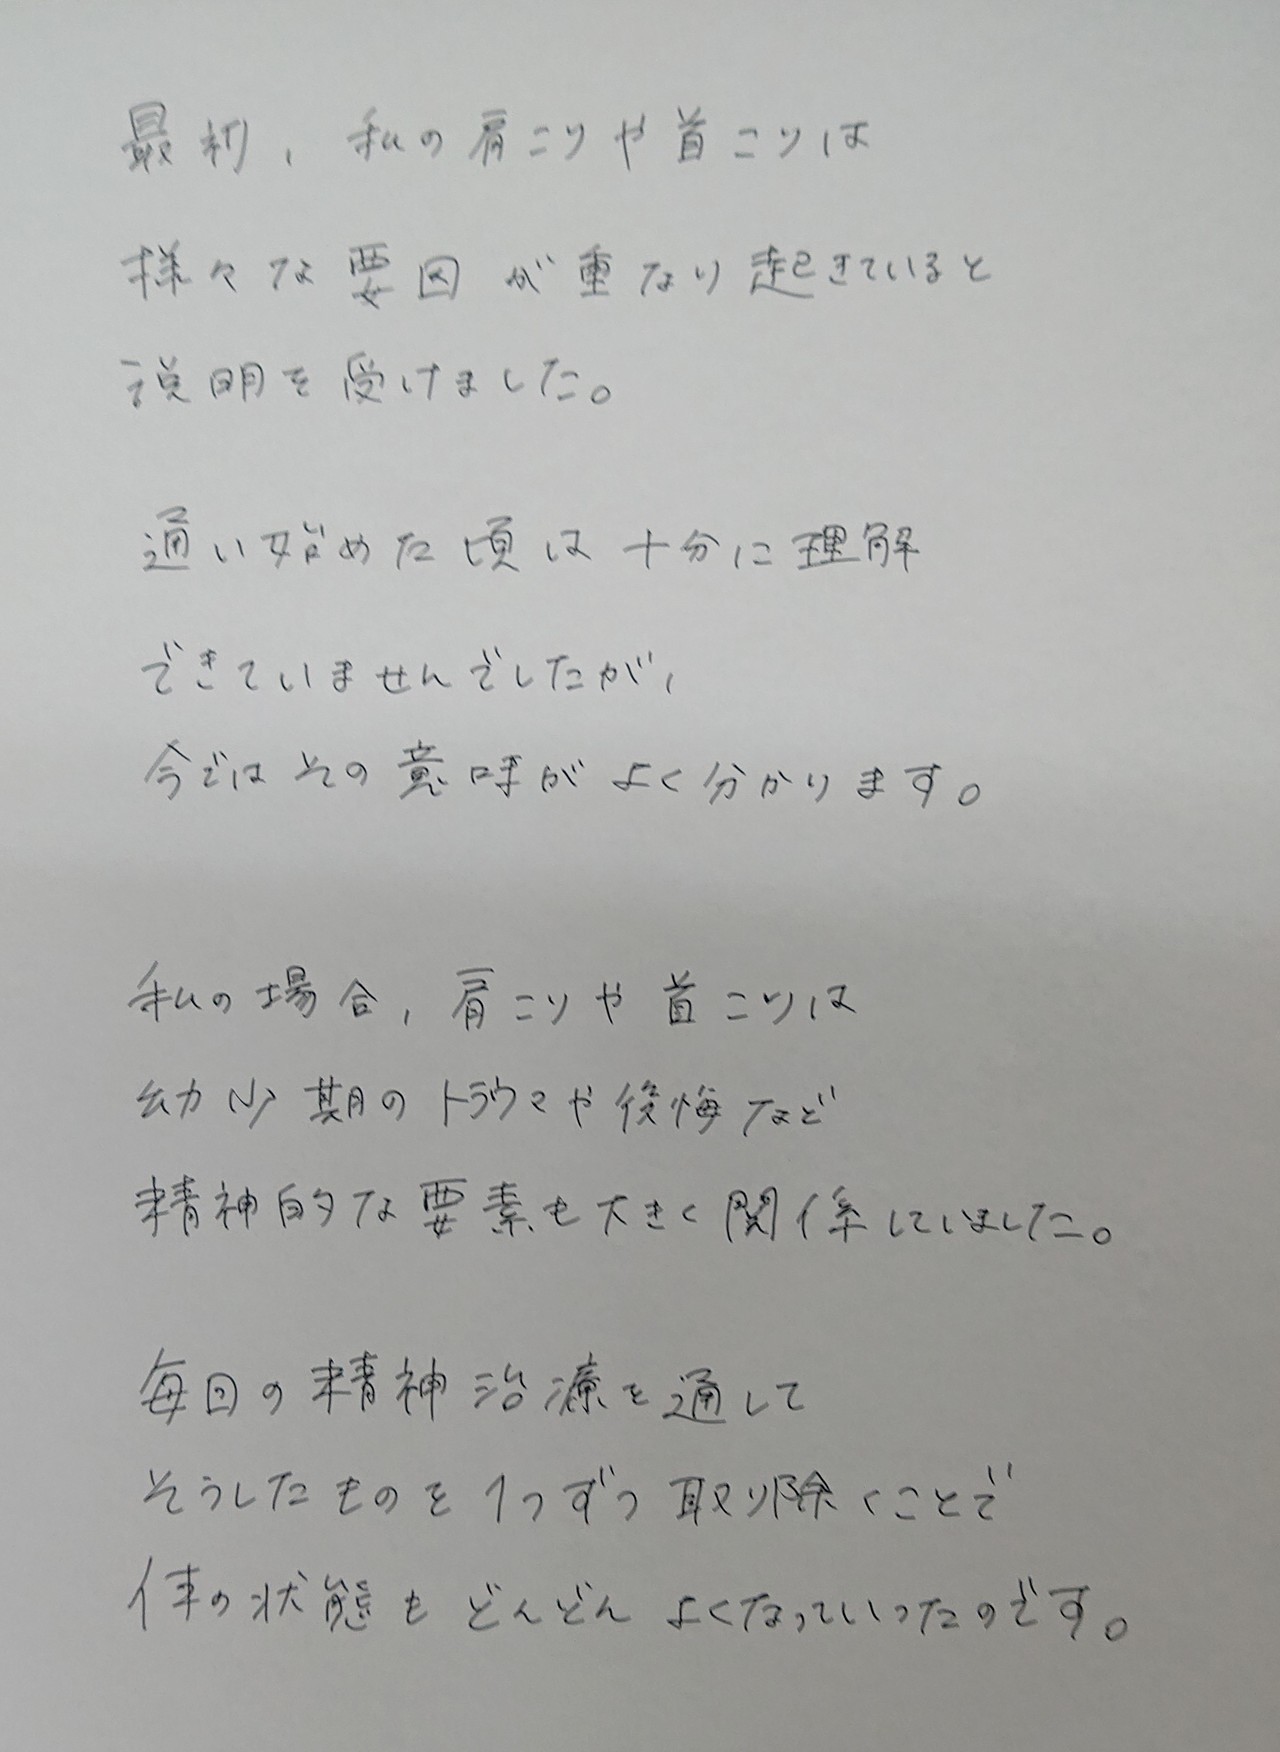 最初、私の肩こりや首こりは
様々な要因が重なり起きていると
説明を受けました。
通い始めた頃は十分に理解
できていませんでしたが、
今ではその意味がよく分かります。
私の場合、肩こりや首こりは
幼少期のトラウマや後悔など
精神的な要素も大きく関係していました。
毎回の精神治療を通して
そうしたものを1つずつ取り除くことで
体の状態もどんどんよくなっていったのです。